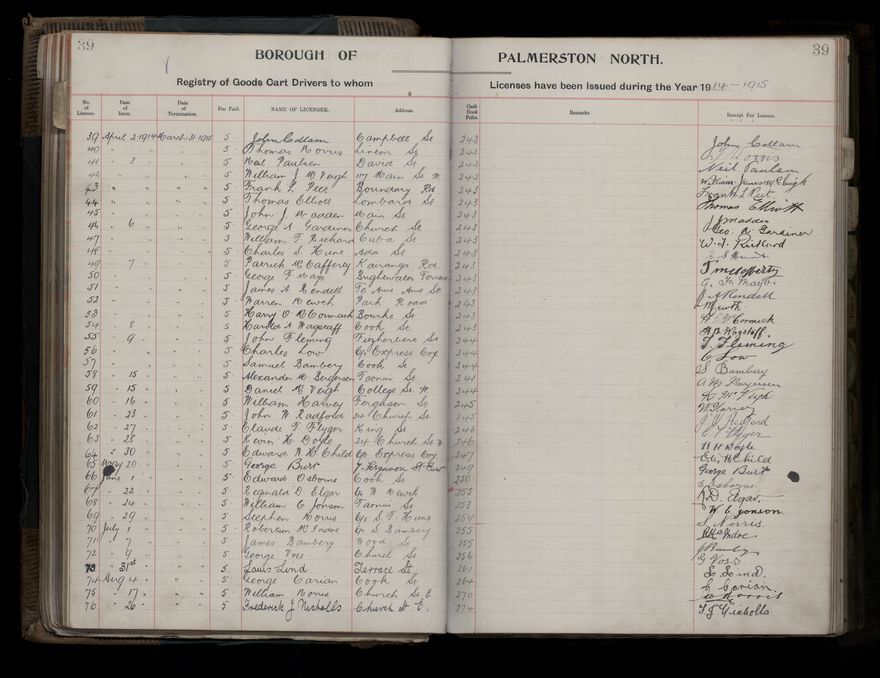 39
39
BOROUGH OF PALMERSTON NORTH.
Registry of Goods Cart Drivers to whom Licenses have been Issued during the Year 1914-1915
No. of License. Date of Issue. Date of Termination. Fee Paid. NAME OF LICENSEE. Address. Cash Book Folio. Remarks. Receipt For License.
39 April 2 1914 March 31 1915 5 John Cottam Campbell St 242 John Cottam
40 " " " " 5 Thomas Norris Linton St 242
41 " 3 " " 5 Neil Paulsen David St 242 Neil Paulsen
42 " " " " 5 William J McVeigh 117 Main St W. 242 William James McVeigh
43 " " " " 5 Frank L Peet Boundary Rd 243 Frank L Peet
44 " " " " 5 Thomas Elliott Lombard St 243 Thomas Elliott
45 " " " " 5 John J Madden Main St 243 J Madden
46 " 6 " " 5 George A Gardiner Church St 243 Geo. A Gardiner
47 " " " " 5 William T. Pickard Cuba St 243
48 " " " " 5 Charles S Hunt Ada St 243
49 " 7 " " 5 Patrick McCafferty Kairanga Rd. 243
50 " " " " 5 George F Mayo 243
51 " " " " 5 James A Rendell Te Awe Awe St 243 J A Rendell
52 " " " " 5 Warren Park Road 243
53 " " " " 5 Harry O McCormack Bourke St 243
54 " 8 " " 5 Harold A Wagstaff Cook St 243 H A Wagstaff
55 " 9 " " 5 John Fleming Fitzherbert St 244 J. Fleming
56 " " " " 5 Charles Low C/o Express Coy 244 C Low
57 " " " " 5 Samuel Bambery Cook St 244 S Bambery
58 " 15 " " 5 Alexander Taonui St 241
59 " 15 " " 5 Daniel McVeigh College St. W. 244
60 " 16 " " 5 William Harvey Ferguson St 245 W Harvey
61 " 23 " " 5 John W Radford 34 Church St. 245 J W Radford
62 " 27 " " 5 Claude F Flyger King St 246
63 " 28 " " 5 Kevin H Doyle 24 Church St W. 246 Doyle
64 " 30 " " 5 Edward W H Child C/o Express Coy. 247
65 May 20 " " 5 George Burt 7 Ferguson St East 249 George Burt
66 June 1 " " 5 Edward Osborne Cook St 250 E Osborne
67 " 22 " " 5 Reginald D Elgar 253 R.D. Elgar.
68 " 24 " " 5 William C Jonson Taonui St 253 W C Jonson.
69 " 29 " " 5 Stephen Norris C/o S F Hunt 254 S Norris.
70 July 1 " " 5 Robertson McIndoe C/o S Bambery 255
71 " 7 " " 5 James Bambery Wood St 255 J Bambery
72 " 9 " " 5 George Voss Church St 256 G Voss
73 " 31st " " 5 Louis Lind Terrace St 261 L Lind.
74 Aug 4 " " 5 George Carian Cook St 264 G Carian.
75 " 17 " " 5 William Norris Church St. E 270
76 " 26 " " 5 Frederick J Nicholls Church St E. 274 F J Nicholls